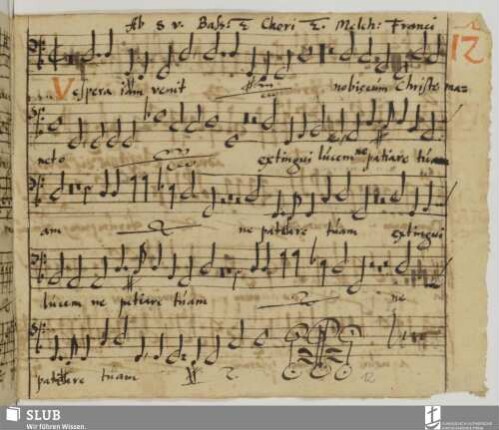 Ab 8 v. Bass: 2 Chori 2. Melch: Franci
12
Vespera iam venit nobiscum Christe ma-
neto extingui lucem ne patiare tuam
am ne patiare tuam extingui
lucem ne patiare tuam ne
patiare tuam
12
SLUB
Wir führen Wissen.